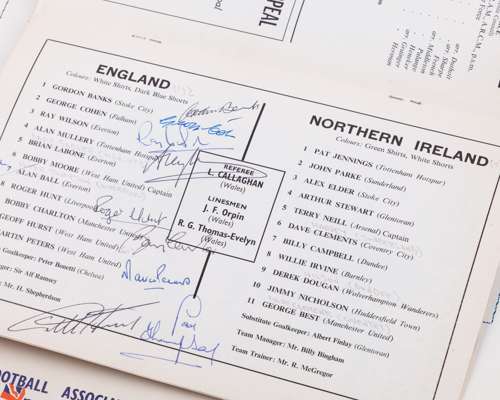 APPEAL
A.R.C.M.
Force
Dunkeit
Sharpe
French
Middleton
Palmer
Hargreaves
Grainger
Herman
ENGLAND
Colours: White Shirts, Dark Blue Shorts
1 GORDON BANKS (Stoke City)
2 GEORGE COHEN (Fulham)
3 RAY WILSON (Everton)
4 ALAN MULLERY (Tottenham Hotspur)
5 BRIAN LABONE (Everton)
6 BOBBY MOORE (West Ham United) Captain
ALAN BALL (Everton)
ROGER HUNT (Liverpool)
BOBBY CHARLTON (Manchester United)
GEOFF HURST (West Ham United)
MARTIN PETERS (West Ham United)
Goalkeeper: Peter Bonetti (Chelsea)
Sir Alf Ramsey
Mr. H. Shepherdson
Gordon Banks
Roger Hunt
REFEREE
L. CALLAGHAN
(Wales)
LINESMEN
J. F. Orpin
(Wales)
R. G. Thomas-Evelyn
(Wales)
NORTHERN IRELAND
Colours: Green Shirts, White Shorts
1 PAT JENNINGS (Tottenham Hotspur)
2 JOHN PARKE (Sunderland)
3 ALEX ELDER (Stoke City)
4 ARTHUR STEWART (Glentoran)
5 TERRY NEILL (Arsenal) Captain
6 DAVE CLEMENTS (Coventry City)
7 BILLY CAMPBELL (Dundee)
8 WILLIE IRVINE (Burnley)
9 DEREK DOUGAN (Wolverhampton Wanderers)
10 JIMMY NICHOLSON (Huddersfield Town)
11 GEORGE BEST (Manchester United)
Substitute Goalkeeper: Albert Finlay (Glentoran)
Team Manager: Mr. Billy Bingham
Team Trainer: Mr. R. McGregor
FOOTBALL ASSOC